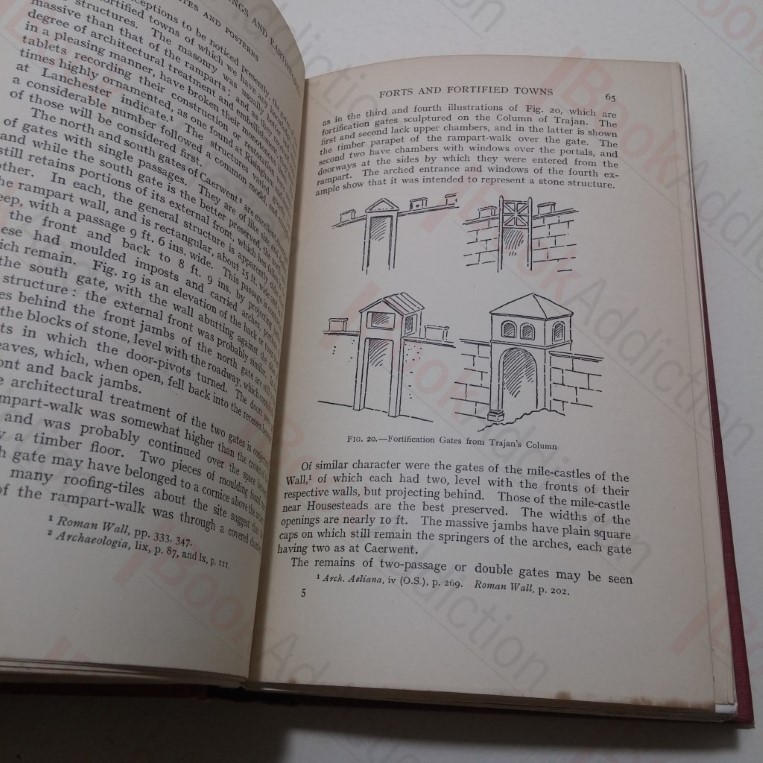 INGS AND EARTHW
TES AND POSTERNS
ceptions to be noticed presently, the
ortified towns of which we have
structures. The masonry was usually
massive than that of the ramparts; and
degree of architectural treatment and embellish
in a pleasing manner, have broken their monoto
tablets recording their construction or
times highly ornamented, as one found at
at Lanchester indicate. The structures
a considerable number followed a common
of those will be considered first.
The north and south gates of Caerwent are
of gates with single passages. They are of
and while the south gate is the better preserved,
still retains portions of its external front, which has
other. In each, the general structure is
the rampart wall, and is rectangular, about 15 ft.
eep, with a passage 9 ft. 6 ins. wide. This passage
the front and back to 8 ft. 9 ins. by
ese had moulded imposts and carried arches,
ich remain. Fig. 19 is an elevation of the back or
the south gate, with the wall abutting against the
structure: the external front was probably similar.
es behind the front jambs of the north gate are
the blocks of stone, level with the roadway, which
ts in which the door-pivots turned. The doors
eaves, which, when open, fell back into the recesses
ont and back jambs.
e architectural treatment of the two gates is
mpart-walk was somewhat higher than the
and was probably continued over the
y a timber floor. Two pieces of moulding found
h gate may have belonged to a cornice above the
many roofing-tiles about the site suggest
of the rampart-walk was through a covered
¹ Roman Wall, pp. 333, 347.
² Archaeologia, lix, p. 87, and lx, p. 111.
FORTS AND FORTIFIED TOWNS 65
as in the third and fourth illustrations of Fig. 20, which are
fortification gates sculptured on the Column of Trajan. The
first and second lack upper chambers, and in the latter is shown
the timber parapet of the rampart-walk over the gate. The
second two have chambers with windows over the portals, and
doorways at the sides by which they were entered from the
rampart. The arched entrance and windows of the fourth ex-
ample show that it was intended to represent a stone structure.
FIG. 20.—Fortification Gates from Trajan's Column
Of similar character were the gates of the mile-castles of the
Wall,¹ of which each had two, level with the fronts of their
respective walls, but projecting behind. Those of the mile-castle
near Housesteads are the best preserved. The widths of the
openings are nearly 10 ft. The massive jambs have plain square
caps on which still remain the springers of the arches, each gate
having two as at Caerwent.
The remains of two-passage or double gates may be seen
¹ Arch. Aeliana, iv (O.S.), p. 269. Roman Wall, p. 202.
5
iBook Addiction